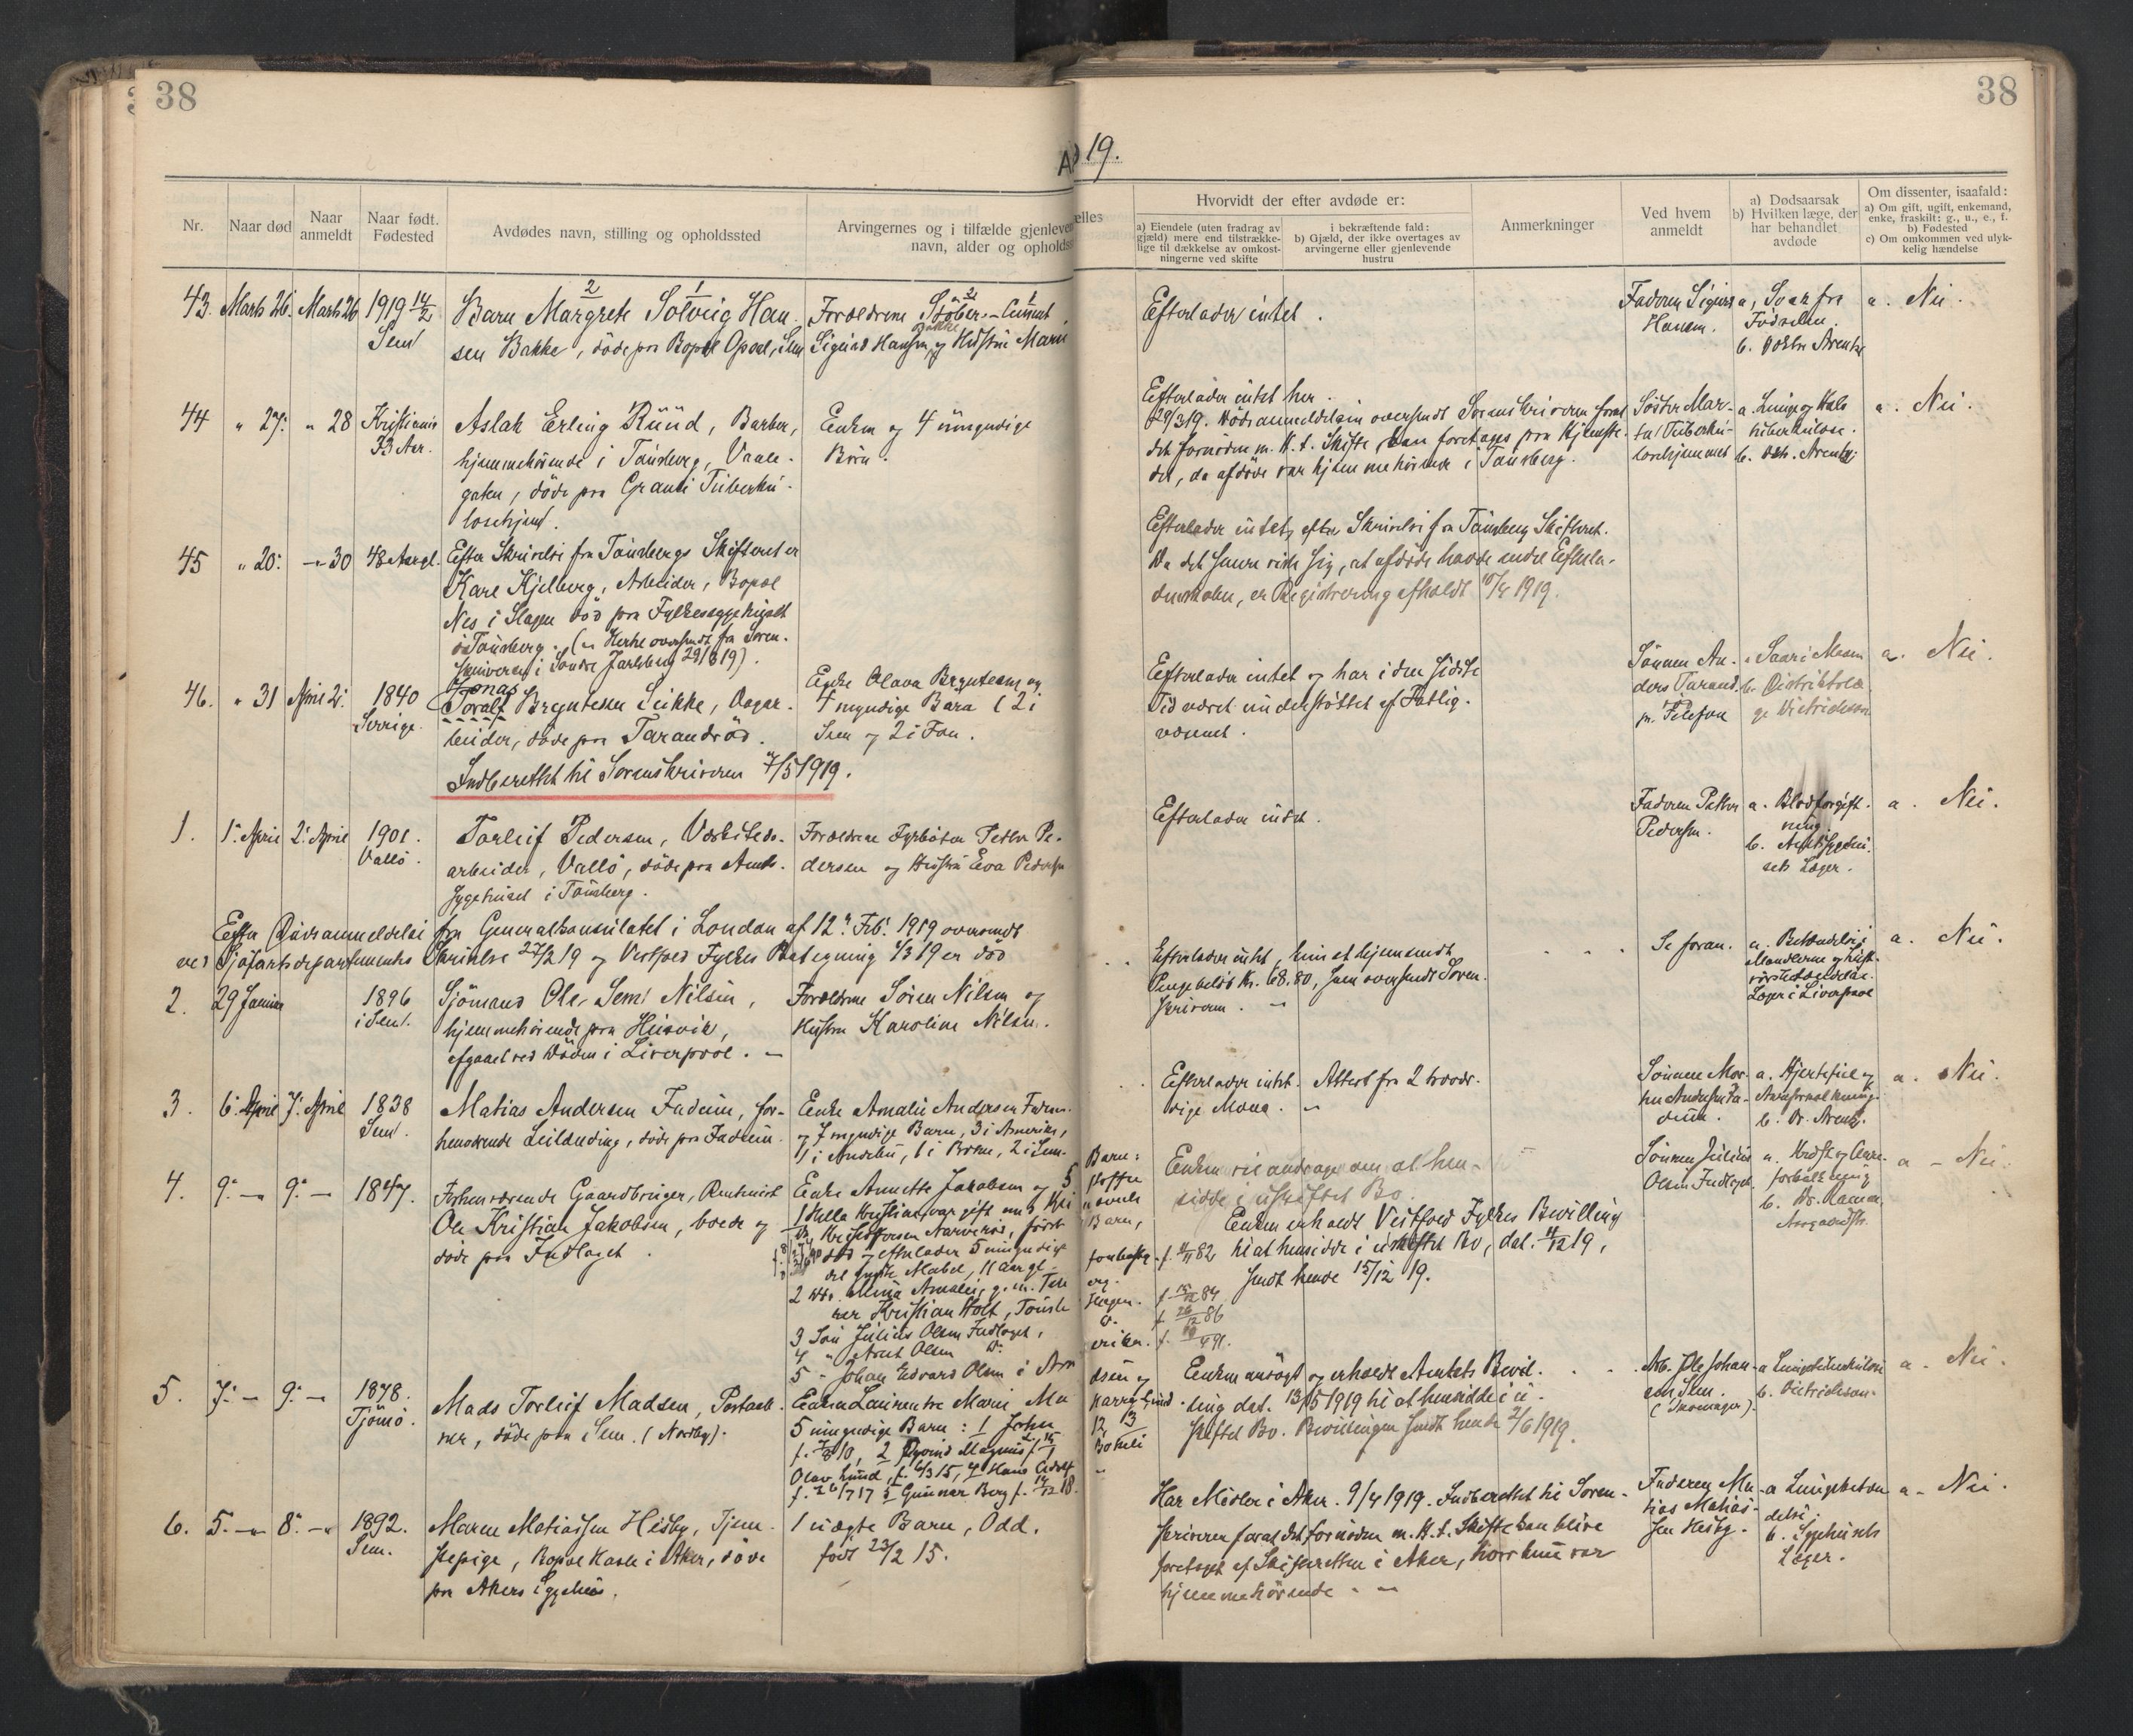 38
38
A
19.
Nr.
Naar død
Naar anmeldt
Naar født. Fødested
Avdødes navn, stilling og opholdssted
Arvingernes og i tilfælde gjenleven
navn, alder og opholds
elles
Hvorvidt der efter avdøde er:
a) Eiendele (uten fradrag av gjæld) mere end tilstrække-lige til dækkelse av omkost-ningerne ved skifte
i bekræftende fald:
b) Gjæld, der ikke overtages av arvingerne eller gjenlevende hustru
Anmerkninger
Ved hvem anmeldt
a) Dødsaarsak
b) Hvilken læge, der har behandlet avdøde
Om dissenter, isaafald:
a) Om gift, ugift, enkemand, enke, fraskilt: g., u., e., f.
b) Fødested
c) Om omkommen ved ulyk-kelig hændelse
43. Marts 26. Marts 26 1919 14/2
Sem
Barn Margrete Solveig Han-
sen Bakke, døde paa Bopæl Opsal, Sem
Forældrene Støber
Sigurd Hansen Bakke og Hustru Marie
Efterlader intet.
Faderen Sigurd
Hansen.
a. Svak fra
Fødselen.
b. Doktor Arentz
a. Nei.
44 " 27. " 28 Kristiania
33 Aar.
Aslak Erling Ruud, Barber,
hjemmehørende i Tønsberg, Vaale-
gaten, døde paa Granli Tuberku-
losehjem.
Enken og 4 umyndige
Børn.
Efterlader intet her.
29/3 19. Dødsanmeldelsen oversendt Sorenskriveren foral
det fornødne m. H. t. Skifte kan foretages paa Hjemste-
det, da afdøde var hjemmehørende i Tønsberg.
Søster Mar-
ta Tuberku-
losehjemmet
a. Lunge og Hals
tuberkulose.
b. Dok. Arentz.
a. Nei.
45 " 20. - 30 48 Aar gl.
Efter Skrivelse fra Tønsbergs Skifteret er
Kare Kjelberg, Arbeider, Bopæl
Nes i Slagen død paa Fylkessygehuset
i Tønsberg. (
skriveren i Søndre Jarlsberg 29/3 19).
Efterlader intet, efter Skrivelse fra Tønsberg Skifteret.
Da det senere viste sig, at afdøde havde endel Efterla-
denskaber, er Registrering afholdt 10/4 1919.
46. " 31 April 2. 1840
Sverige
Jonas
Toralf Bryntesen Leikke, Dagar-
beider, døde paa Tarandrød.
Enke Olava Bryntesen og
4 myndige Børn (2 i
Sem og 2 i Fon.
Efterlader intet og har i den sidste
Tid været understøttet af Fattig-
væsenet.
Sønnen An-
ders Tarand.
pr. Telefon
a. Saar i Maven
b. Distriktslæ-
ge Dietrichson
a. Nei.
Indberettet til Sorenskriveren 7/5 1919.
1. 1. April 2. April 1901.
Vallø.
Torleif Pedersen, Verksteds-
arbeider, Vallø, døde paa Amts-
sygehuset i Tønsberg.
Forældrene Fyrbøter Petter Pe-
dersen og Hustru Eva Pedersen
Efterlader intet.
Faderen Petter
Pedersen.
a. Blodforgift-
ning.
b. Amtssygehu-
sets Læger.
a. Nei.
Efter Dødsanmeldelse fra Generalkonsulatet i London af 12. Feb. 1919 oversendt
ved Sjøfartsdepartementets Skrivelse 27/2 19 og Vestfold Fylkes Pategning 1/3 19 er død
2. 29 Januar 1896
i Sem.
Sjømand Ole Semi Nilsen,
hjemmehørende paa Husvik,
afgaaet ved Døden i Liverpool.
Forældrene Søren Nilsen og
Hustru Karoline Nilsen.
Efterlader intet, kun et hjemsendt
Pengebeløb Kr. 68.80, som oversendt Soren-
skriveren.
Se foran.
a. Betændelse i
Mandlerne og Luft-
Læger i Liverpool
a. Nei.
3. 6. April 7. April 1838
Sem.
Matias Andersen Fadum, for-
henværende Leilænding, døde paa Fadum.
Enke Amalie Andersen Fadum.
og 7 myndige Børn, 3 i Amerika,
1 i Andebu, 1 i Borre, 2 i Sem.
Efterlader intet. Attest fra 2 trovær-
dige Mænd.
Sønnen Mar-
tin Andersen Fa-
dum.
a. Hjertefeil og
Aareforkalkning.
b. Dr. Arentz.
a. Nei.
4. 9. - 9. - 1847.
Forhenværende Gaardbruger, Rentenist
Ole Kristian Jakobsen, boede og
døde paa Indlaget.
Enke Annette Jakobsen og 5
Børn:
1 Hella Kristine, var gift med
Kristoffersen Narverød,
død og efterlader 5 umyndige
Børn,
det yngste Mabel, 11 aar gl.
2 Dtr. Alma Amalie, g. m.
Kristian Holt, Tønsb
erg.
3 Søn Julius Olsen Indlaget,
4 " Aret Olsen D.
5 " Johan Edvard Olsen i Am
erika.
f. 11/11 82
f. 15/12 84
f. 26/12 86
Enken vil andrage om at hen-
sidde i uskiftet Bo.
Enken erholdt Vestfold Fylkes Bevilling
til at hensidde i uskiftet Bo, dat. 11/12 19,
sendt hende 15/12 19.
Sønnen Julius
Olsen Indlaget.
forkalkning
a - Nei.
5. 7. - 9. - 1878.
Tjømø.
Mads Torleif Madsen, Postaab-
ner, døde paa Sem. (Nordby).
Enken Laurentze Marie Ma
dsen og
5 umyndige Børn: 1 John
2 Øyvind Magnus
Olav Lund, f. 6/3 15, 4 Hans Adolf
f. 26/7 17 5 Gunnar Berg f. 14/12 18.
Enken ansøgt og erholdt Amtets Bevil-
ling dat. 13/5 1919 til at hensidde i u-
skiftet Bo. Bevillingen sendt hende 2/6 1919.
Arb. Ole Johan-
sen Sem.
a Lungetuberkulose
b. Dietrichson.
a - Nei.
6. 5. - 8. - 1892.
Sem.
Maren Matiassen Hesby, Tjene-
stepige, Bopæl i Aker, døde
paa Akers Sygehus.
1 uægte Barn, Odd.
født 23/2 15.
Har Midler i Aker. 9/4 1919. Indberettet til Soren-
skriveren foral det fornødne m. H. t. Skifte kan blive
foretaget af Skifteretten i Aker, hvor hun var
hjemmehørende
Faderen Ma-
tias Matias-
sen Hesby.
a Lungebetæn
delse.
b. Sygehusets
Læger.
a - Nei.